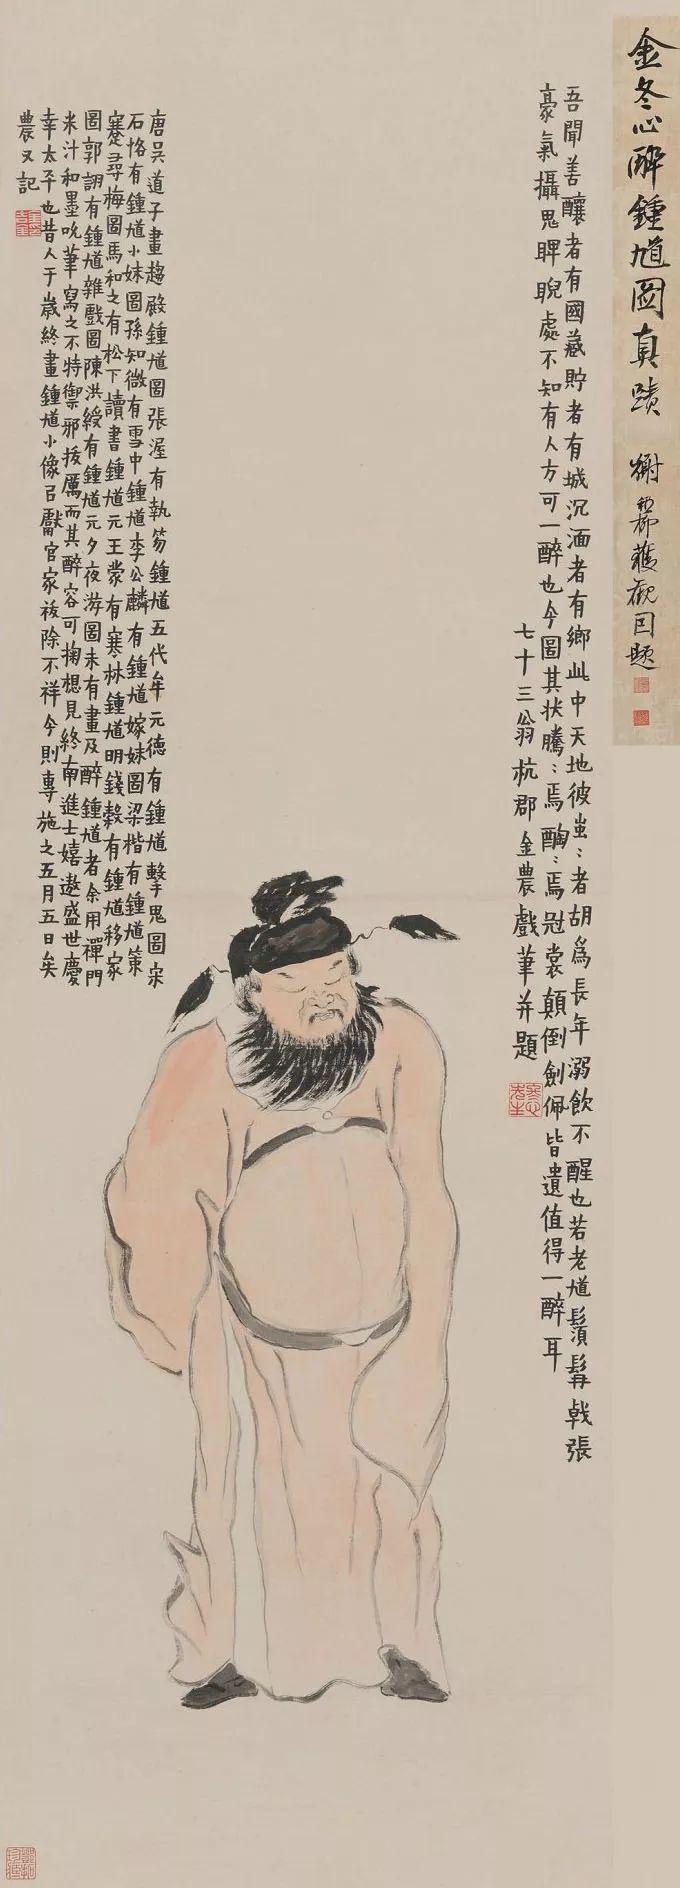 金冬心醉鍾馗圖真蹟
獲觀因題
吾聞善釀者有國藏貯者有城沉湎者有鄉此中天地彼蚩:者胡爲長年溺飲不醒也若老馗鬚髯戟張
豪氣攝鬼睥睨處不知有人方可一醉也今圖其状騰:焉醄:焉冠裳顛倒劍佩皆遺值得一醉耳
七十三翁杭郡金農戲筆并題
唐吳道子畫趨殿鍾馗圖張渥有執笏鍾馗五代牟元德有鍾馗擊鬼圖宋
石恪有鍾馗小妹圖孫知微有雪中鍾馗李公麟有鍾馗嫁妹圖梁楷有鍾馗策
蹇尋梅圖馬和之有松下讀書鍾馗元王蒙有寒林鍾馗明錢榖有鍾馗移家
圖郭詡有鍾馗雜戲圖陳洪綬有鍾馗元夕夜游圖未有畫及醉鍾馗者余用禪門
米汁和墨吮筆寫之不特禦邪拔厲而其醉容可掬想見終南進士嬉遨盛世慶
幸太平也昔人于歲終畫鍾馗小像㠯獻官家祓除不祥今則專施之五月五日矣
農又記